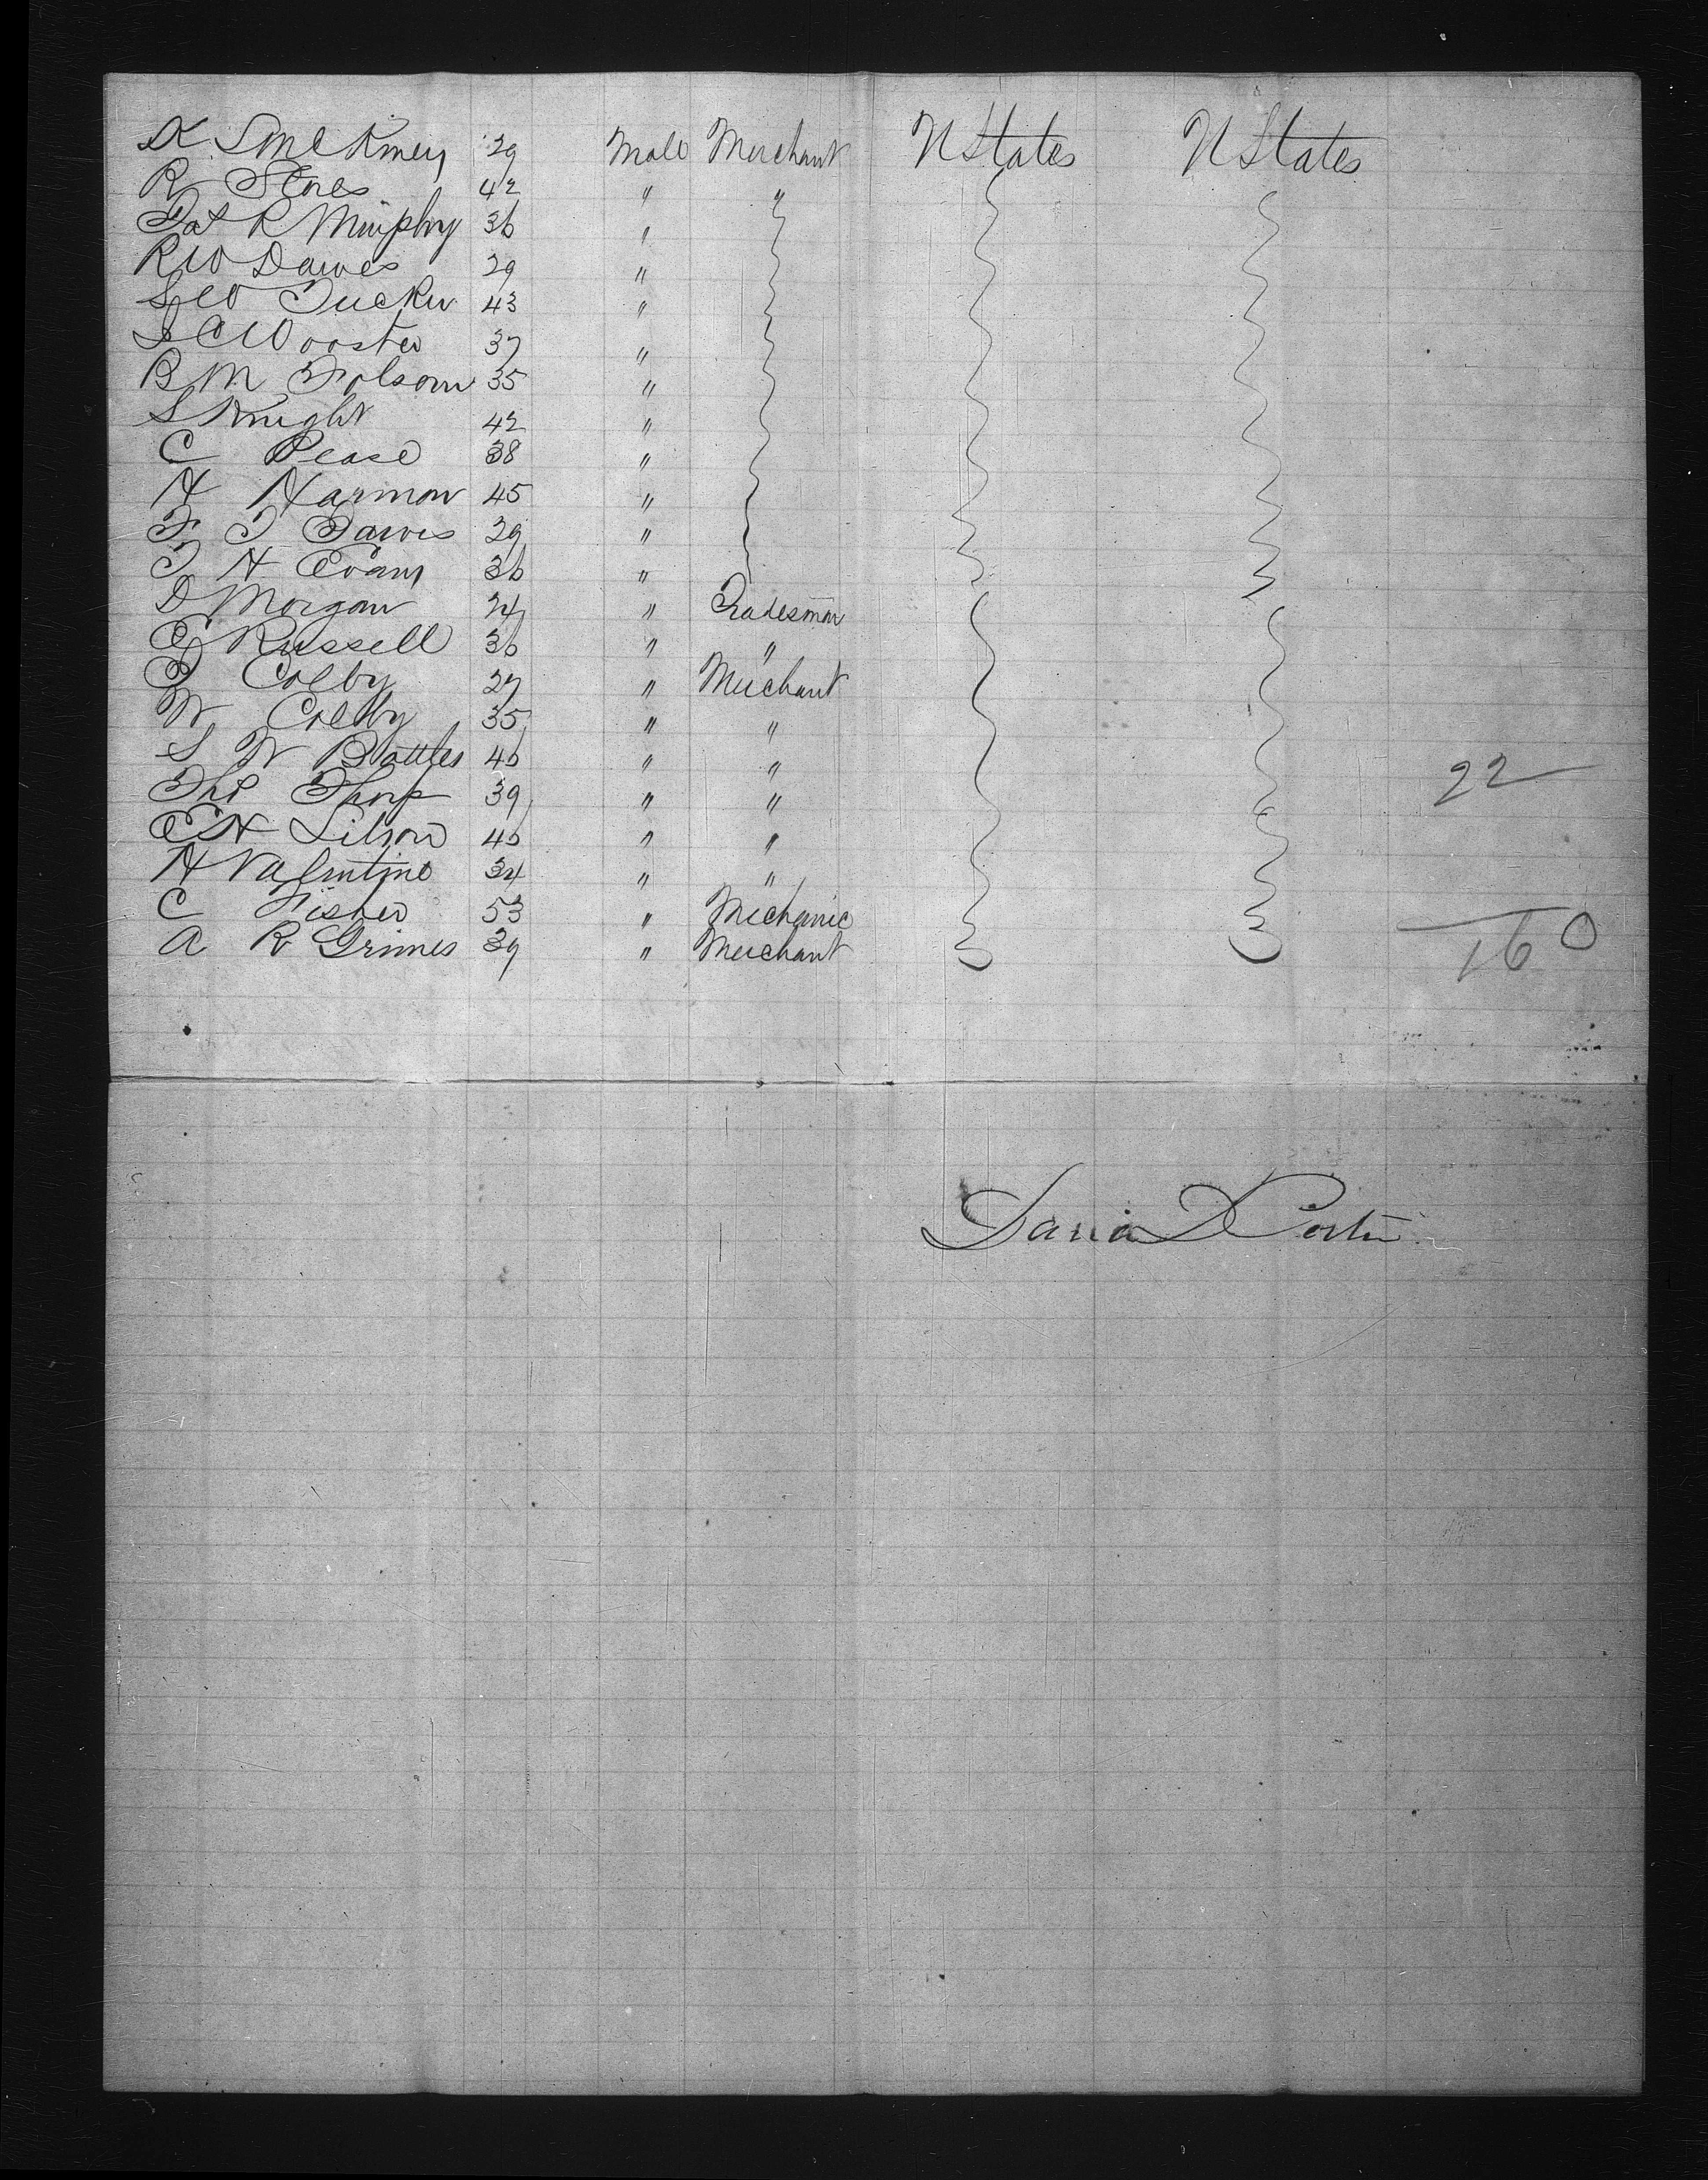 K S McKiney 29 Male Merchant U States U States
R Stores 42 " "
Pat R Murphy 36 "
R W Dawes 29 "
S W Tucker 43 "
S C Wooster 37 "
B M Folsom 35 "
S Knight 42 "
C Pease 38 "
H Harmon 45 "
F T Dawes 29 "
T H Evans 36 "
D Morgan 24 " Tradesman
E Russell 36 " "
T Colby 27 " Merchant
W Colby 35 " "
S W Battles 46 " "
Tho Thorp 39 " " 22
C H 46 " "
H Valentine 34 " "
C Fisher 53 " Mechanic
A R Grimes 39 " Merchant 160
David D Porter